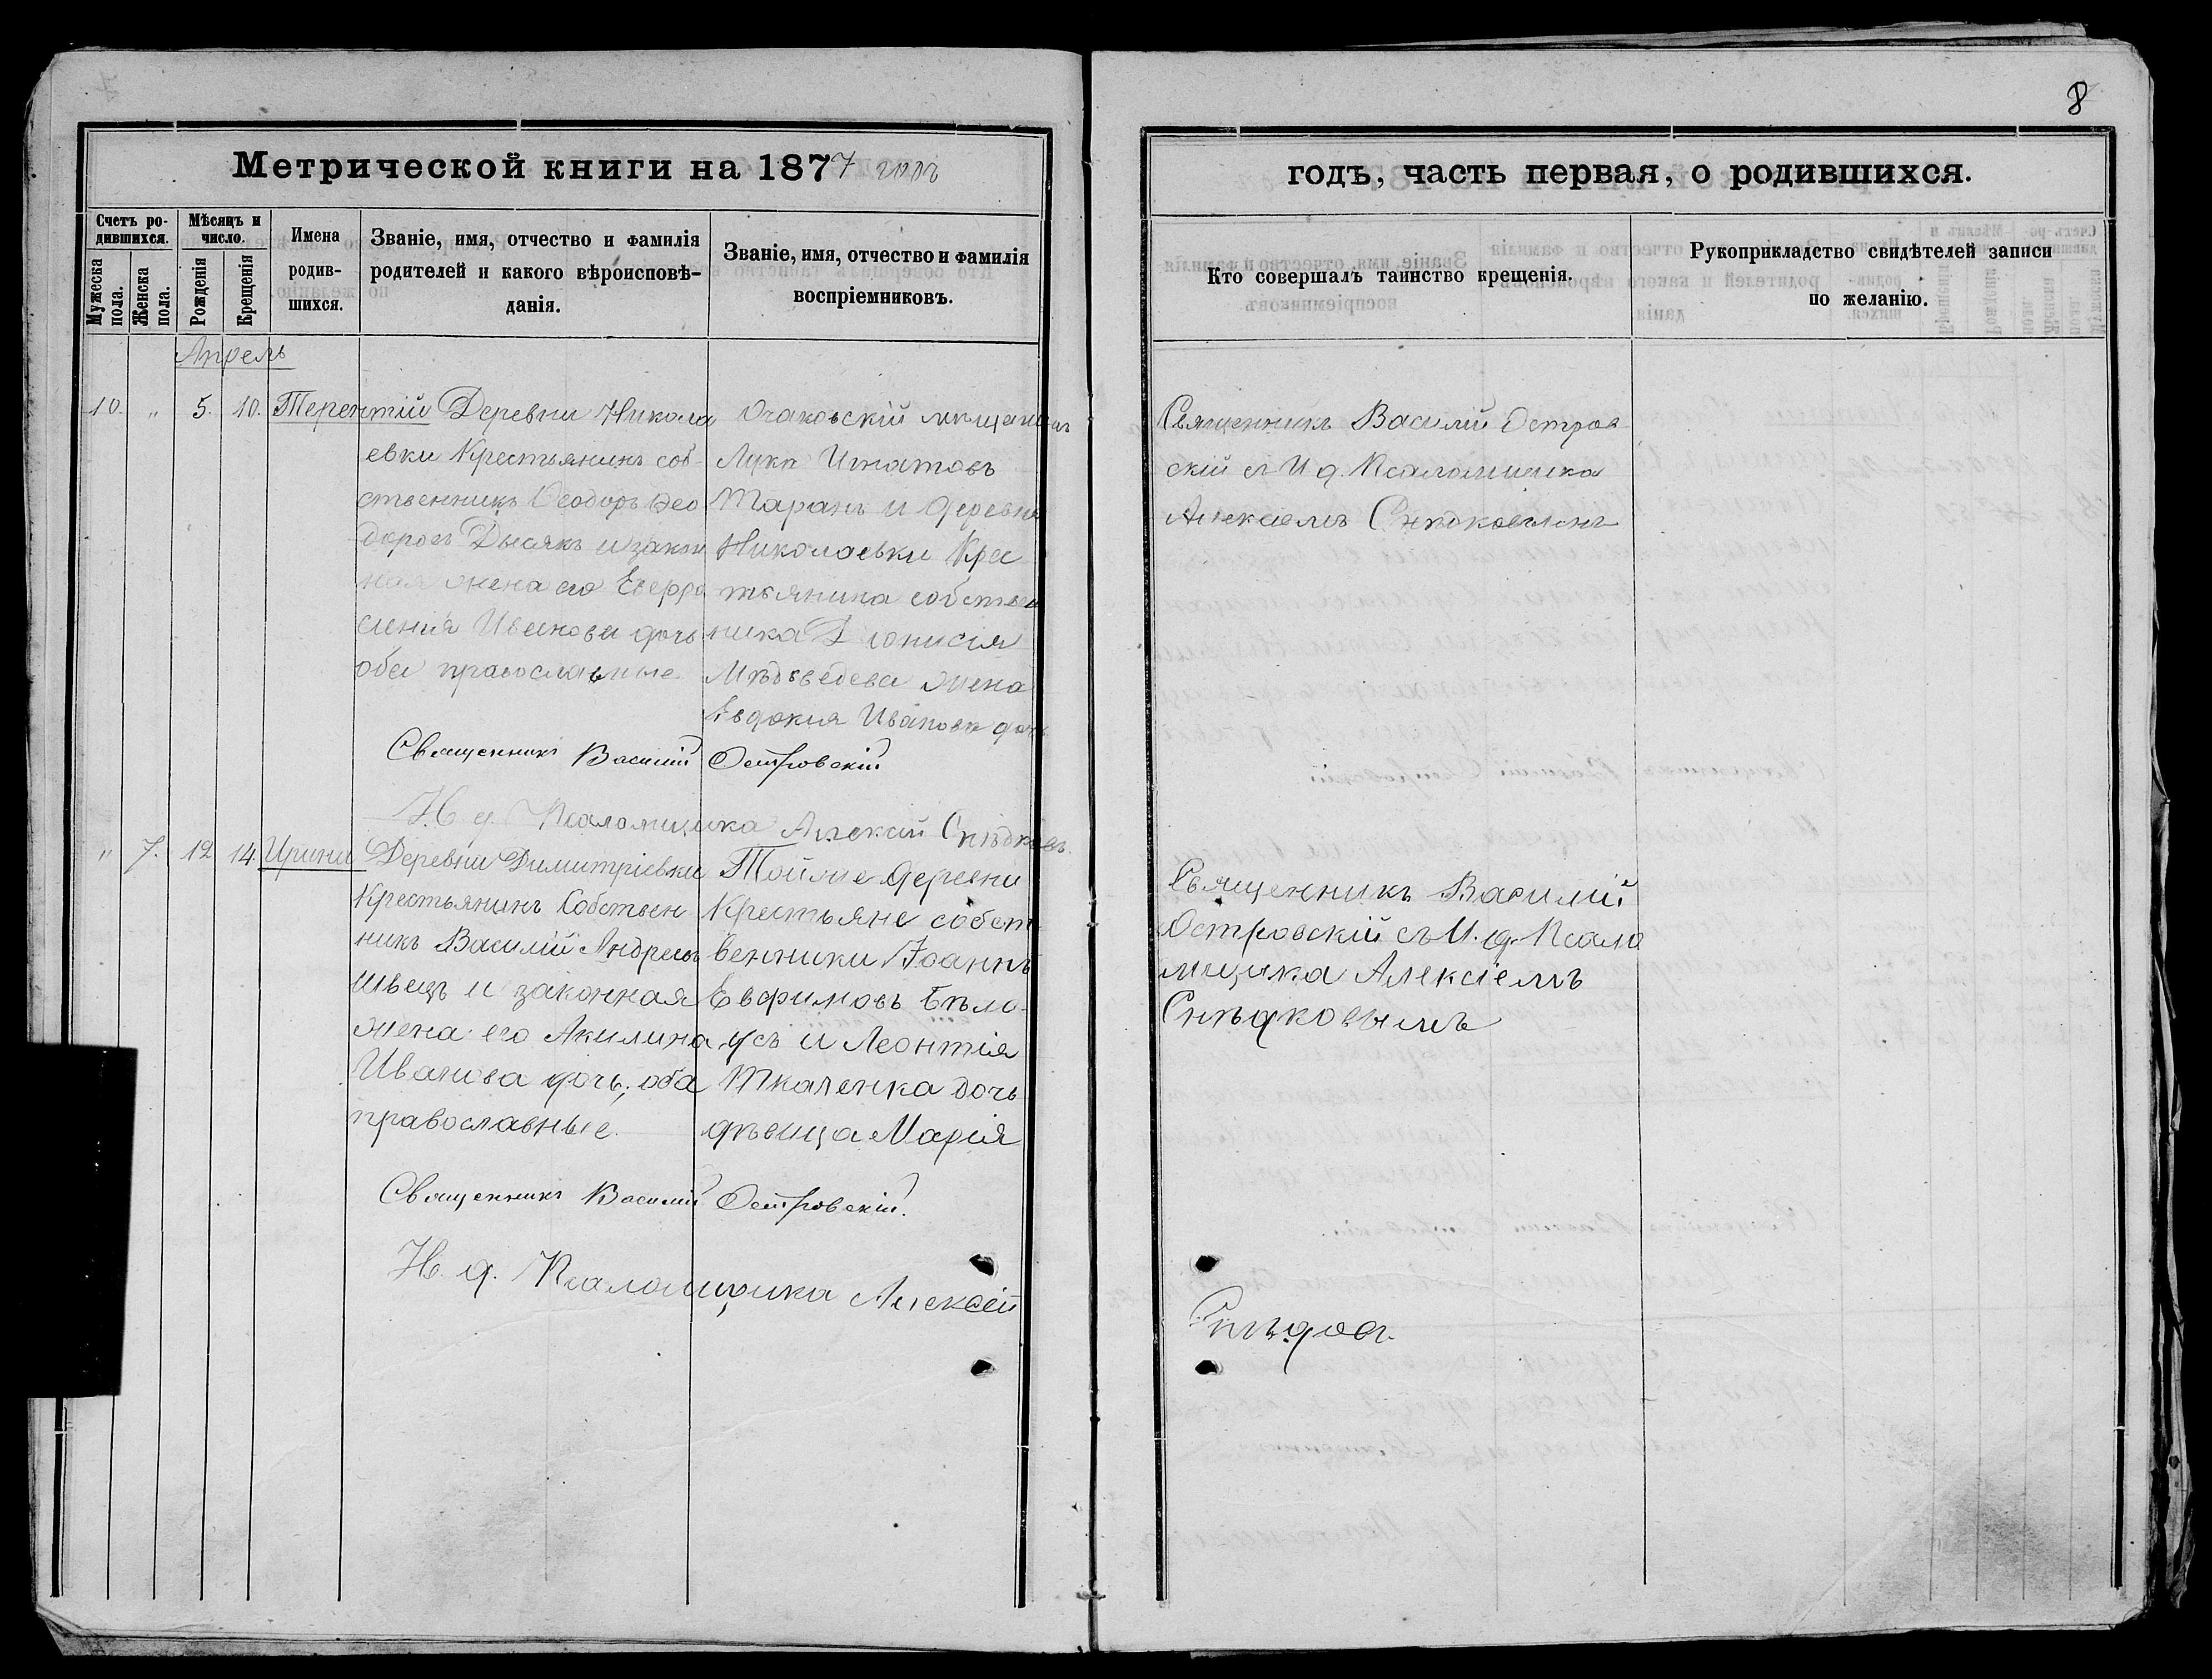 8
Метрической книги на 1877 годъ
годъ, часть первая, о родившихся.
Счетъ ро-
дившихся.
Мужеска
пола.
Женска
пола.
Мѣсяцъ и
число.
Рожденія
Крещенія
Имена
родив-
шихся.
Званіе, имя, отчество и фамилія
родителей и какого вѣроисповѣ-
данія.
Званіе, имя, отчество и фамилія
воспріемниковъ.
Кто совершалъ таинство крещенія.
Рукоприкладство свидѣтелей записи
по желанію.
Апрель
10. " 5. 10. Терентій
Деревни Никола
евки Крестьянинъ соб-
ственникъ Ѳеодоръ Ѳео
доровъ Дысякъ и закон
ная жена его Евфро
синія Иванова дочь
оба православные
Очаковскій мѣщанинъ
Лука Игнатовъ
Таранъ и деревни
Николаевки Кре
тьянина собствен
ника Діонисія
Мѣдьведева жена
Евдокия Иванова дочь
Священникъ Василій Остров
скій съ И. д. Псаломщика
Священникъ Василій Островскій
И. д. Псаломщика Алексій
" 7. 12 14. Ирина
Деревни Димитріевки
Крестьянинъ Собствен
никъ Василій Андреевъ
Швецъ и законная
жена его Акилина
Иванова дочь; оба
православные.
Тойже деревни
Крестьяне собст
венники Іоаннъ
Евфимовъ Бѣло-
усъ и Леонтія
Ткаленка дочь
дѣвица Марія
Священникъ Василій
Островскій съ И. д. Псало
мщика Алексіемъ
Снѣдковымъ
Священникъ Василій Островскій.
И. д. Псаломщика Алексій